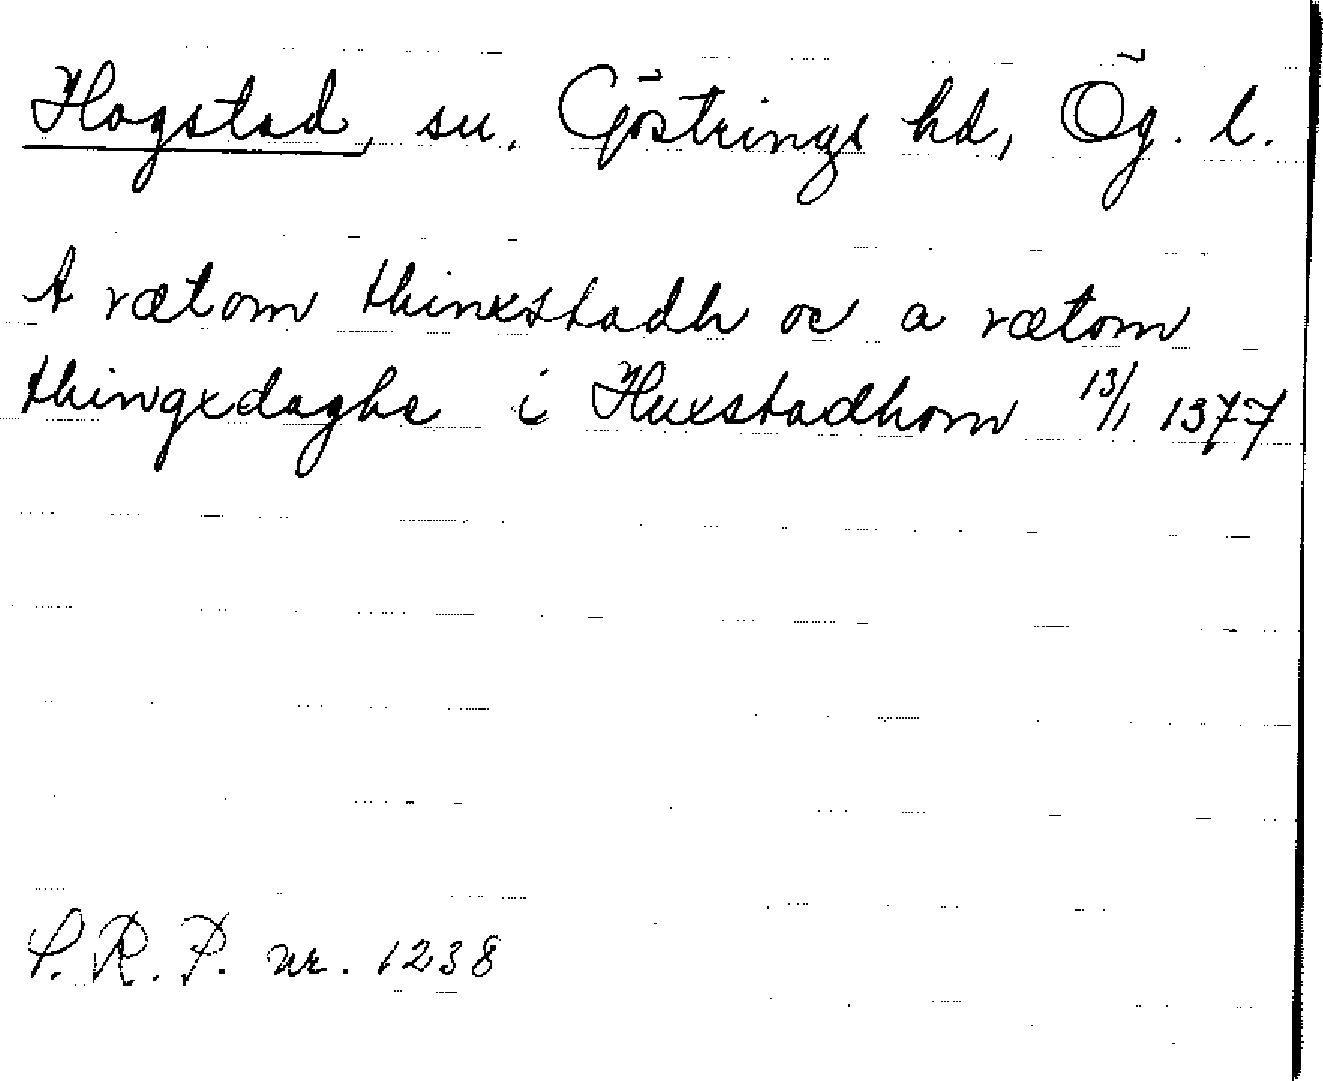 Hogstad, sn. Göstrings hd, Ög. l.
A rætom thinxstadh oc a rætom
thingxdaghe i Huxstadhom 13/1 1377
S.R.P. nr. 1238